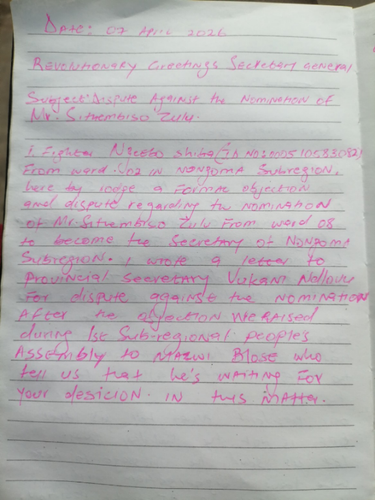 Date: 07 April 2026
Revolutionary Greetings Secretary General
Subject: Dispute Against the Nomination of
Mr. Sithembiso Zulu.
I Fighter Ngcebo
From ward 02 in Nongoma Subregion,
here by lodge a Formal objection
and dispute regarding the nomination
of Mr. Sithembiso Zulu From ward 08
to become the Secretary of Nongoma
Subregion. I wrote a letter to
Provincial Secretary Vukani Ndlovu
For dispute against the Nomination
After the objection we raised
during 1st Sub-regional people's
Assembly to Blose who
tell us that he's waiting For
your desicion. in this matter.